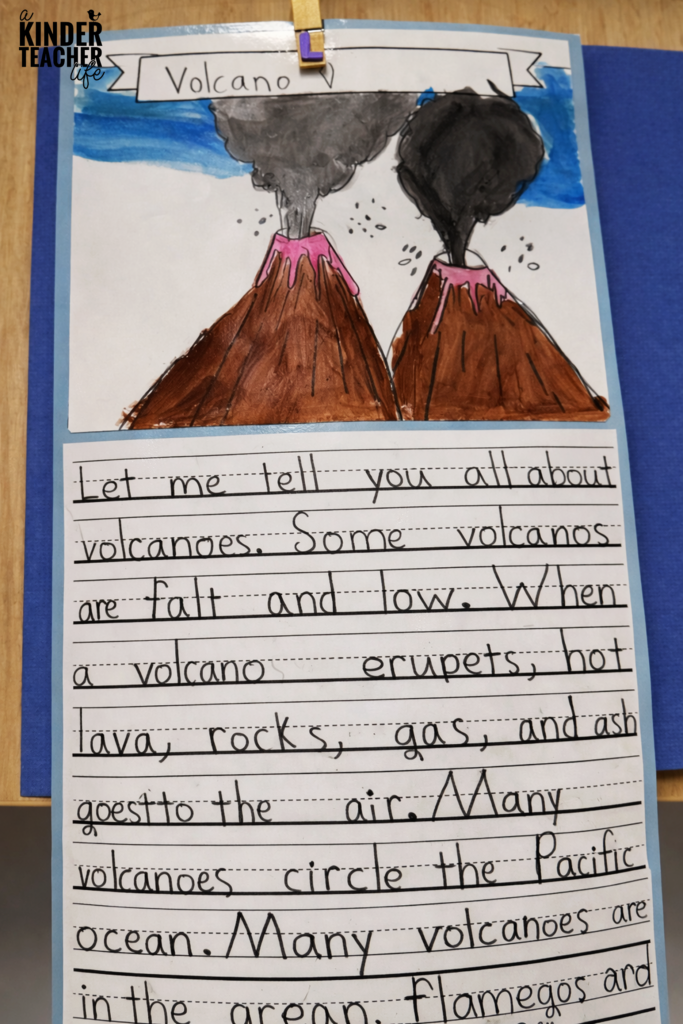 a
KINDER
TEACHER
life
Volcano
Let me tell you all about
volcanoes. Some volcanos
are falt and low. When
a volcano erupets, hot
lava, rocks, gas, and ash
goestto the air. Many
volcanoes circle the Pacific
ocean. Many volcanoes are
in the arean. flamegos and